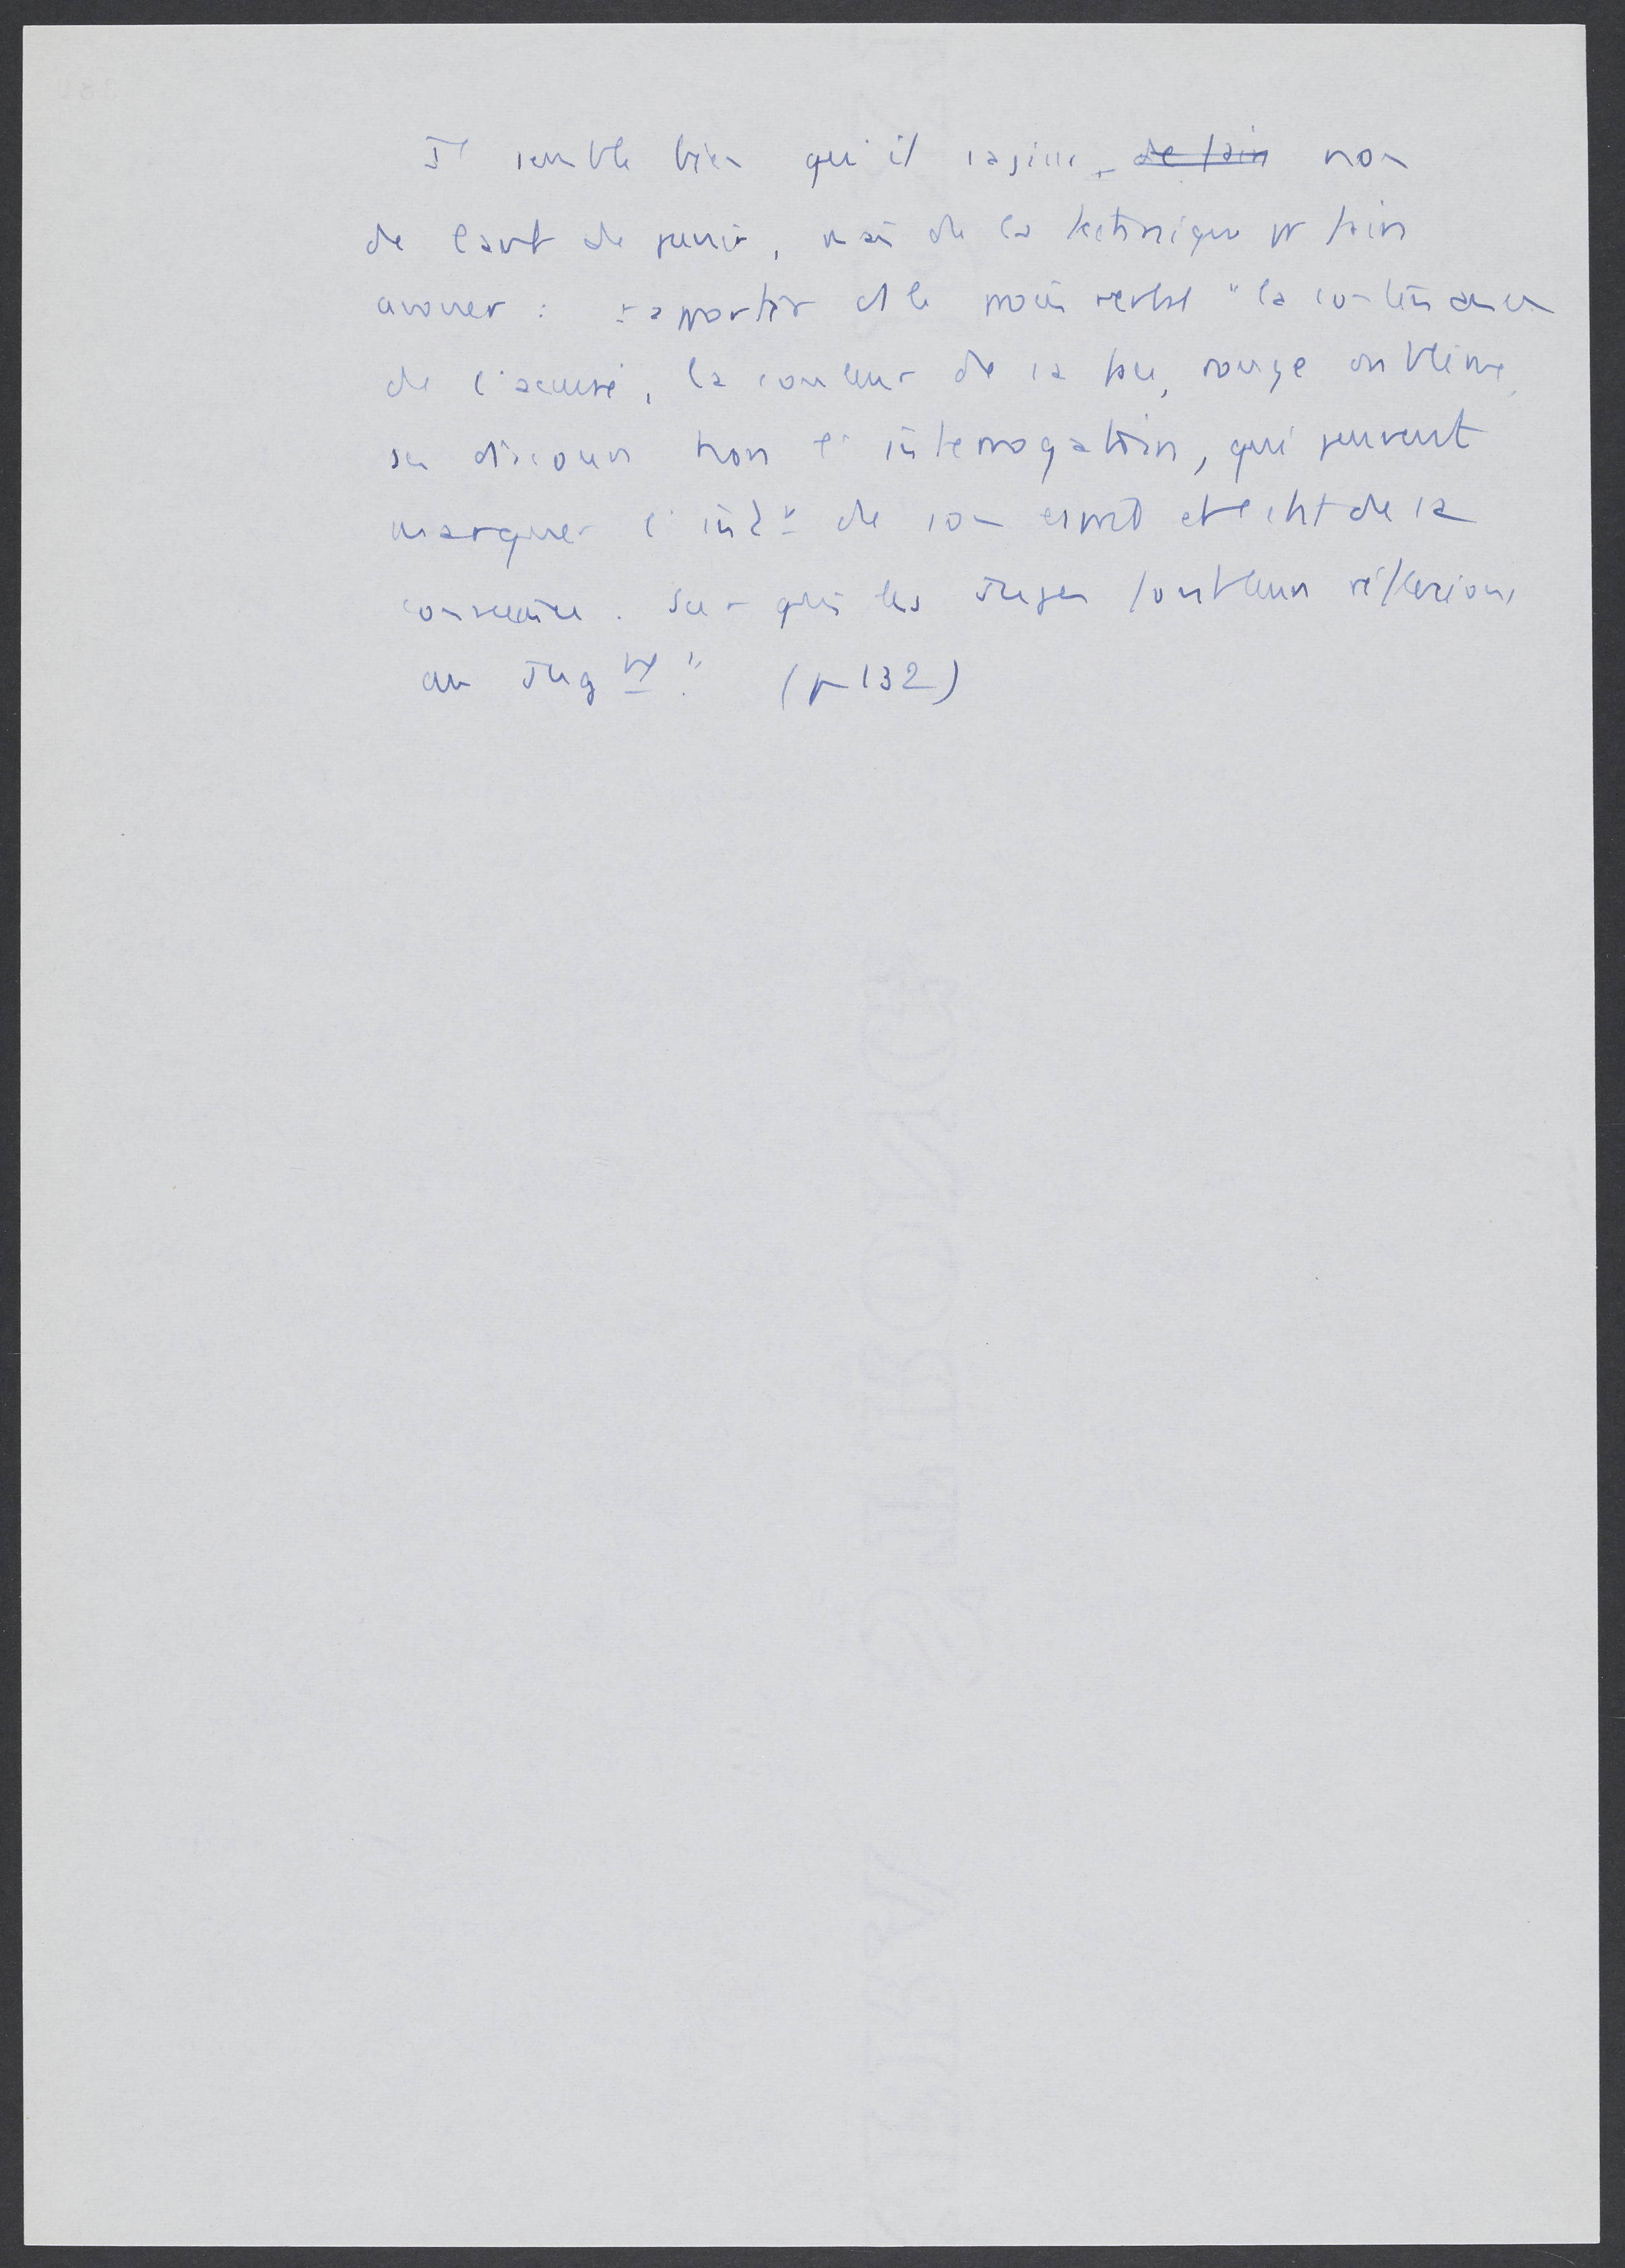 Il semble bien qu'il s'agisse, de faire non
de l'art de punir, mais de la technique pr faire
avouer : rapporter ds le procès verbal "la contenance
de l'accusé, la couleur de sa face, rouge ou blême,
ses discours hors l'interrogatoire, qui peuvent
marquer de son esprit et l'état de sa
conscience. Sur quoi les Juges font leurs réflexions
au Jugt" (p 132)